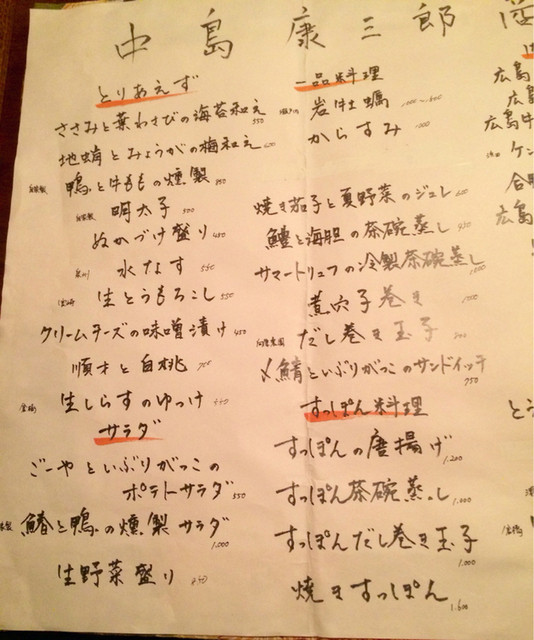 中島康三郎
とりあえず
ささみと葉わさびの海苔和え 550
地蛸とみょうがの梅和え
鴨と牛ももの燻製
明太子
ぬかづけ盛り
水なす 550
生とうもろこし 550
クリームチーズの味噌漬け 450
順才と白桃
生しらすのゆっけ
サラダ
ごーやといぶりがっこの
ポテトサラダ 850
鰆と鴨の燻製サラダ 1.000
生野菜盛り
一品料理
岩牡蠣
からすみ
焼き茄子と夏野菜のジュレ
鱧と海胆の茶碗蒸し
サマートリュフの冷製茶碗蒸し
煮穴子巻き
だし巻き玉子
〆鯖といぶりがっこのサンドイッチ 750
すっぽん料理
すっぽんの唐揚げ 1.200
すっぽん茶碗蒸し 1.000
すっぽんだし巻き玉子 1.000
焼きすっぽん 1.600
広島
広島
広島牛
ケン
広島
と